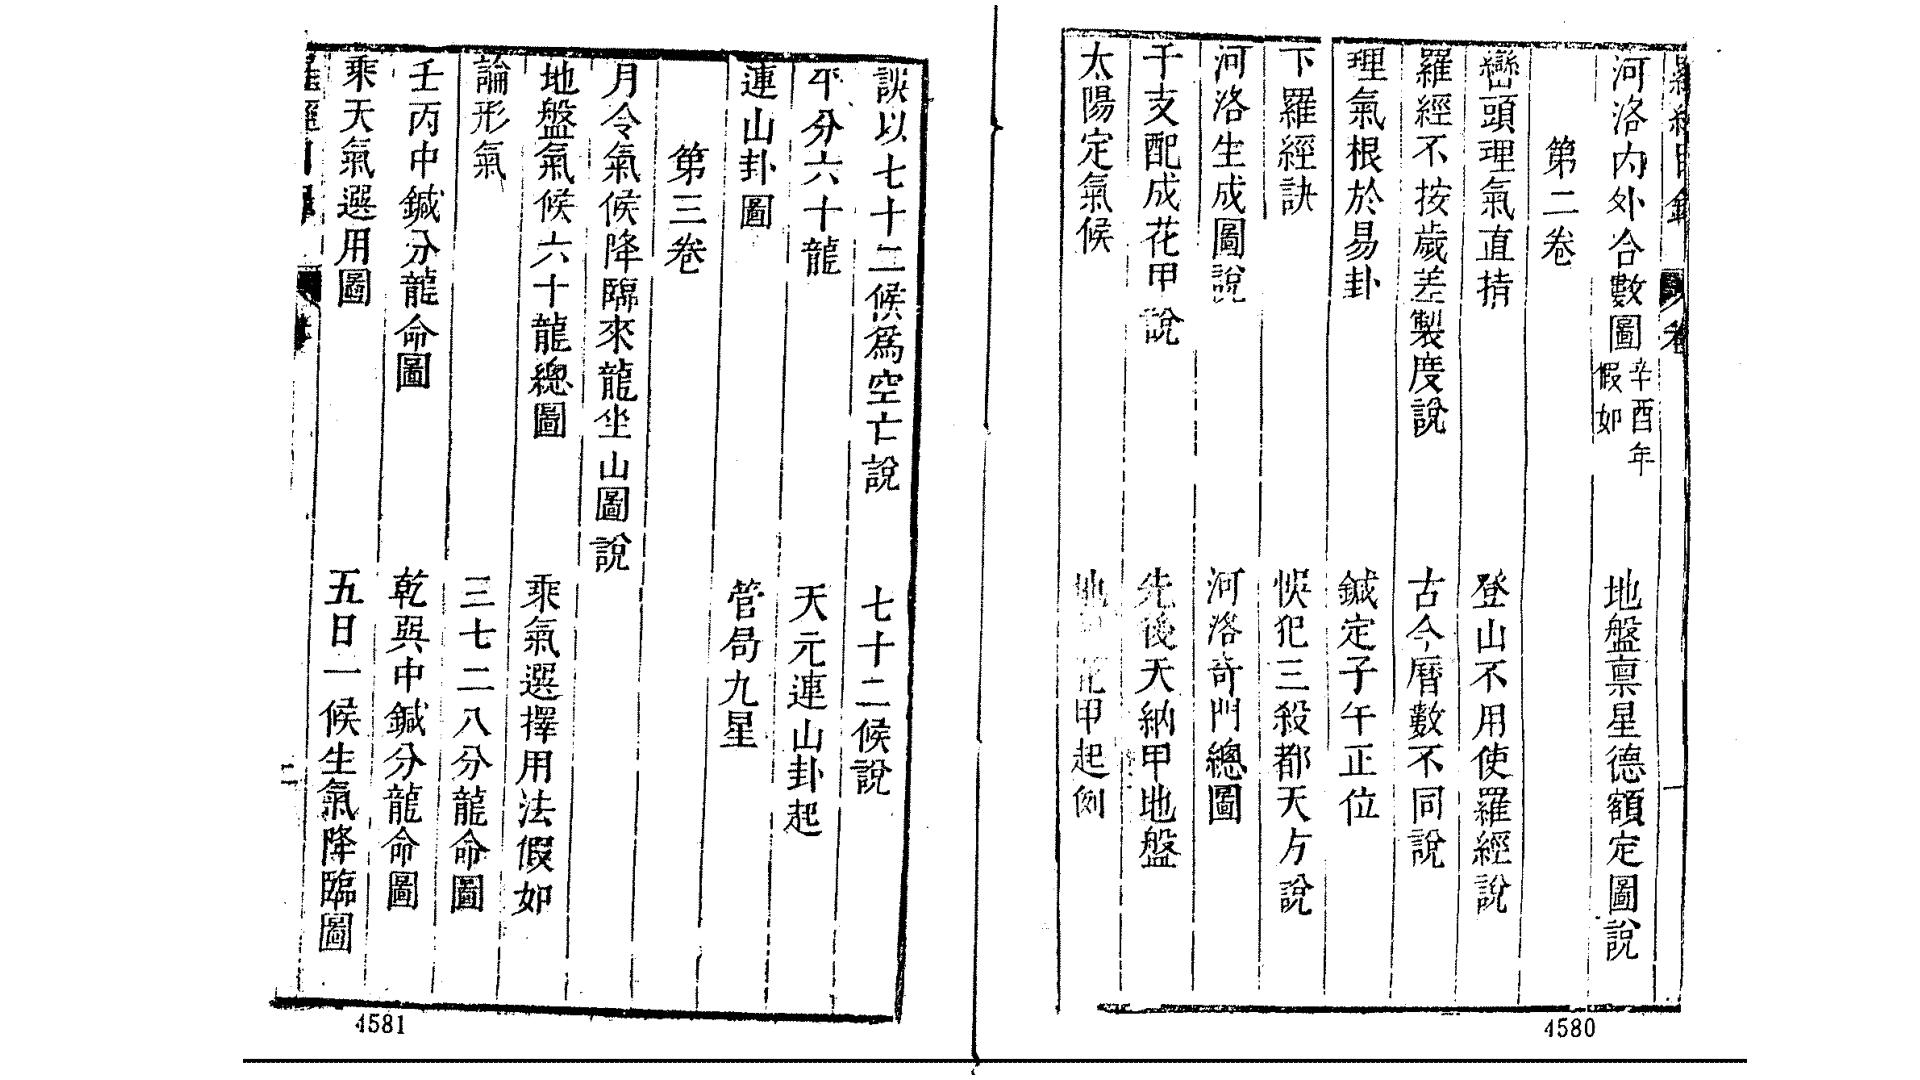 河洛內外合數圖 辛酉年假如 地盤禀星德額定圖說
第二卷
巒頭理氣直指 登山不用使羅經說
羅經不按歲差製度說 古今曆數不同說
理氣根於易卦 鍼定子午正位
下羅經訣 悞犯三殺都天方說
河洛生成圖說 河洛奇門總圖
干支配成花甲說 先後天納甲地盤
太陽定氣候 地 花甲起例
誤以七十二候為空亡說 七十二候說
平分六十龍 天元連山卦起
連山卦圖 管局九星
第三卷
月令氣候降臨來龍坐山圖說
地盤氣候六十龍總圖 乘氣選擇用法假如
論形氣 三七二八分龍命圖
壬丙中鍼分龍命圖 乾巽中鍼分龍命圖
乘天氣選用圖 五日一候生氣降臨圖
二
4581
4580